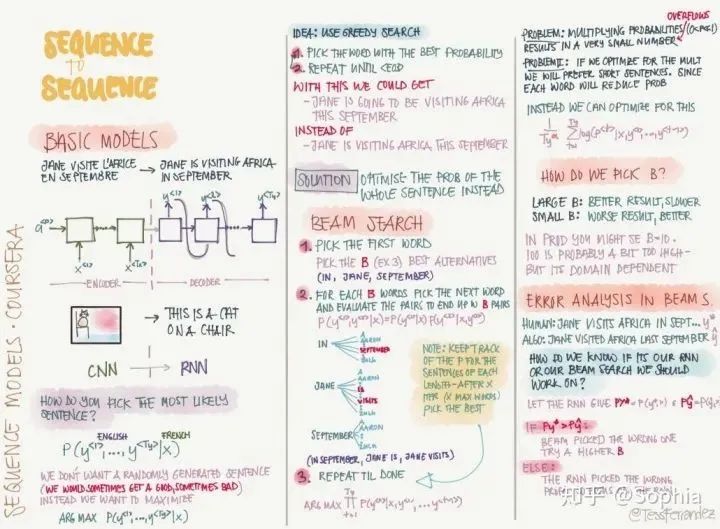 SEQUENCE
TO
SEQUENCE
BASIC MODELS
JANE VISITE L'AFRICE
EN SEPTEMBRE
→ JANE IS VISITING AFRICA
IN SEPTEMBER
a<0>
x<1>
x<Tx>
y<1>
y<2>
y<Ty>
ENCODER
DECODER
THIS IS A CAT
ON A CHAIR
CNN
RNN
HOW DO YOU PICK THE MOST LIKELY
SENTENCE?
ENGLISH
FRENCH
P(y<1>,..., y<Ty>|x)
WE DON'T WANT A RANDOMLY GENERATED SENTENCE
(WE WOULD SOMETIMES GET A GOOD, SOMETIMES BAD)
INSTEAD WE WANT TO MAXIMIZE
ARG MAX P(y<1>,...y<Ty>|x)
SEQUENCE MODELS · COURSERA
IDEA: USE GREEDY SEARCH
1. PICK THE WORD WITH THE BEST PROBABILITY
2. REPEAT UNTIL <EOS>
WITH THIS WE COULD GET
- JANE IS GOING TO BE VISITING AFRICA
THIS SEPTEMBER
INSTEAD OF
- JANE IS VISITING AFRICA THIS SEPTEMBER
SOLUTION
OPTIMISE THE PROB OF THE
WHOLE SENTENCE INSTEAD
BEAM SEARCH
1. PICK THE FIRST WORD
PICK THE B (EX 3) BEST ALTERNATIVES
(IN, JANE, SEPTEMBER)
2. FOR EACH B WORDS PICK THE NEXT WORD
AND EVALUATE THE PAIRS TO END UP W B PAIRS
IN
A
AARON
SEPTEMBER
ZULU
JANE
A
AARON
IS
VISITS
ZULU
SEPTEMBER
A
AARON
ZULU
(IN SEPTEMBER, JANE IS, JANE VISITS)
NOTE: KEEP TRACK
OF THE P FOR THE
SENTENCES OF EACH
LENGTH - AFTER X
ITER (X MAX WORDS)
PICK THE BEST
3. REPEAT TIL DONE
PROBLEM: MULTIPLYING PROBABILITIES (0<P<1)
OVERFLOWS
RESULTS IN A VERY SMALL NUMBER
PROBLEM II: IF WE OPTIMIZE FOR THE MULT
WE WILL PREFER SHORT SENTENCES. SINCE
EACH WORD WILL REDUCE PROB
INSTEAD WE CAN OPTIMIZE FOR THIS
HOW DO WE PICK B?
LARGE B: BETTER RESULT, SLOWER
SMALL B: WORSE RESULT, BETTER
IN PROD YOU MIGHT SE B=10.
100 IS PROBABLY A BIT TOO HIGH-
BUT ITS DOMAIN DEPENDENT
ERROR ANALYSIS IN BEAM S.
HUMAN: JANE VISITS AFRICA IN SEPT... y*
ALGO: JANE VISITED AFRICA LAST SEPTEMBER ŷ
HOW DO WE KNOW IF ITS OUR RNN
OR OUR BEAM SEARCH WE SHOULD
WORK ON?
LET THE RNN GIVE
IF Py* > Pŷ:
BEAM PICKED THE WRONG ONE
TRY A HIGHER B
ELSE:
THE RNN PICKED THE WRONG
知乎 @Sophia
@TessFerrandez